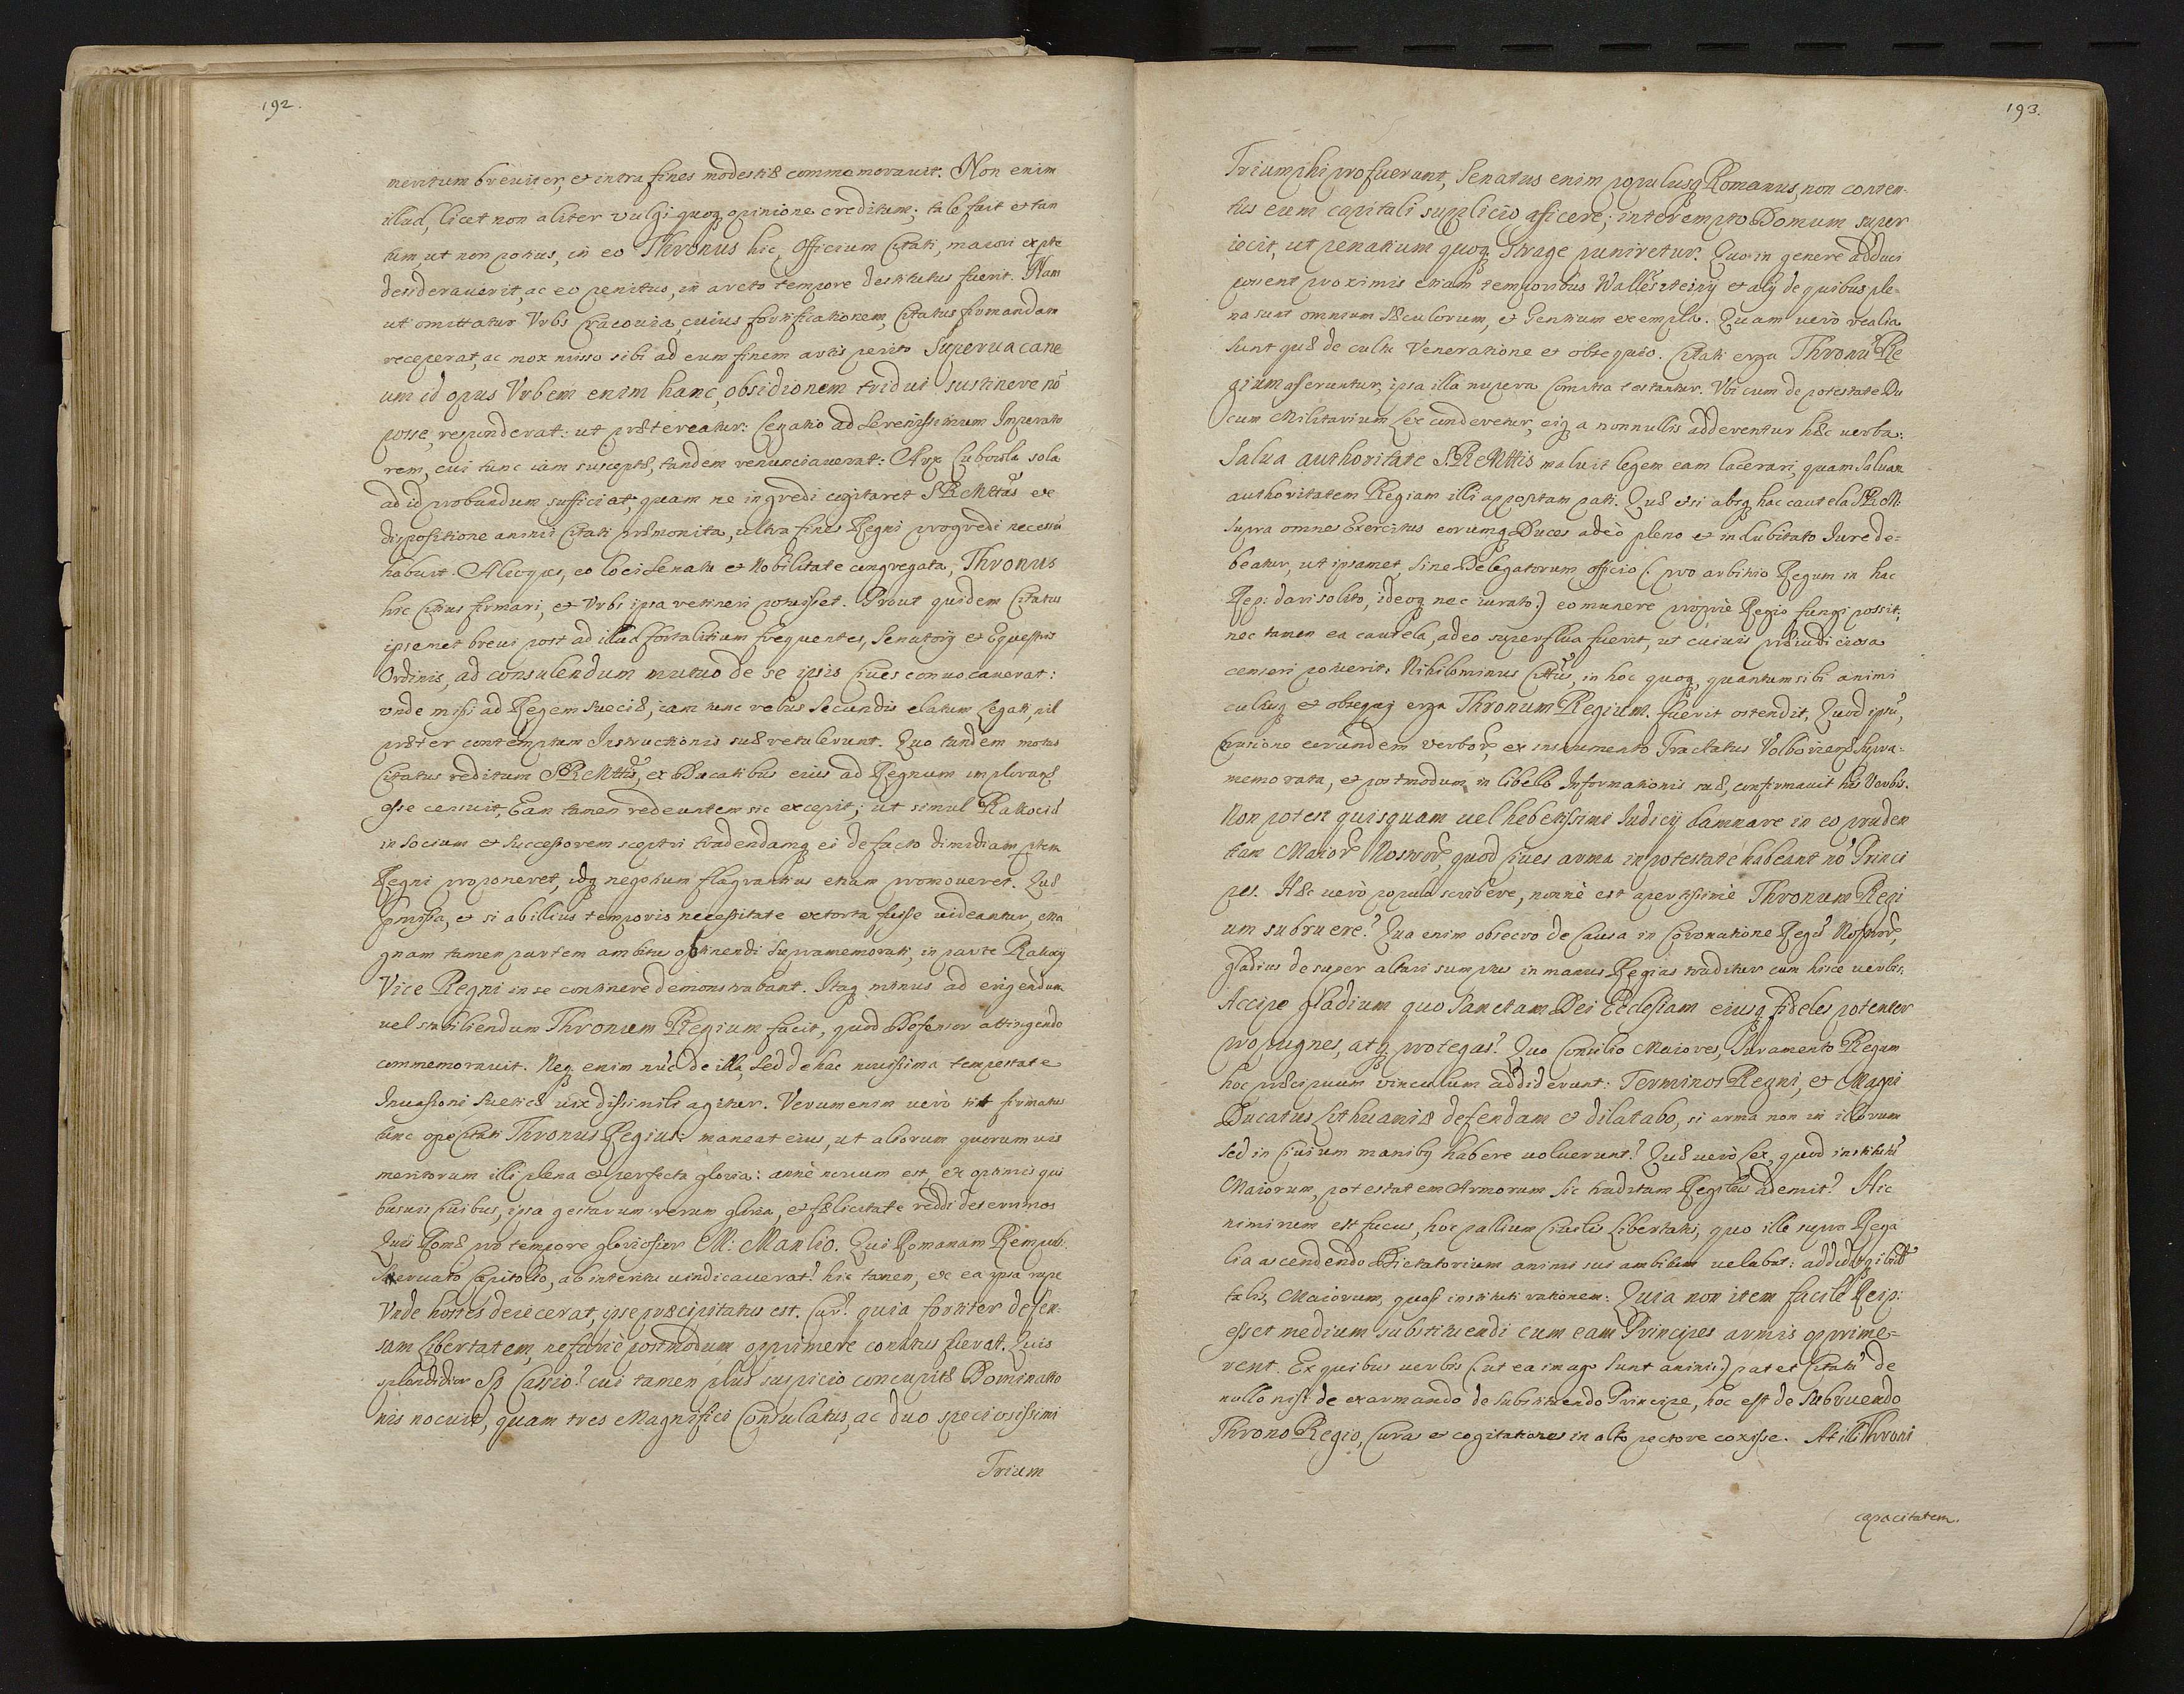 192.
meritum breuiter, et intra fines modestiæ commemorauit. Non enim
illud, licet non aliter vulgi quoq opinione creditum; tale fuit et tan
tum, ut non potius, in eo Thronus hic, Officium Citati, maiori ex pte
desideraverit, ac eo penitus, in arcto tempore destitutus fuerit. Nam
ut omittatur Vrbs Cracovia, cuius fortificationem, Citatus firmandam
receperat, ac mox misso sibi ad eum finem artis perito Superuacane
um id opus Vrbem enim hanc, obsidionem tridui sustinere nō
posse, responderat: ut prætereatur: Legatio ad Serenissimum Imperato
rem, cui tunc iam susceptæ, tandem renunciaverat: Arx Lubowla sola
ad id probandum sufficiat, quam ne ingredi cogitaret SRMttas ex
dispositione animi Citati præmonita, ultra fines Regni progredi necessū
habuit. Alioquis, eo loci Senatu et Nobilitate congregata, Thronus
hic citius firmari, et Vrbs ipsa retineri potuisset. Prout quidem Citatus
ipsemet breui post ad illud fortalitium frequentes, Senatorij et Equestris
Ordinis, ad consulendum mutuo de se ipsis Ciues conuocauerat:
vnde missi ad Regem Sueciæ, iam tunc rebus Secundis elatum Legati, nil
præter contemptum Instructionis suæ retulerunt. Quo tandem motus
Citatus reditum SRMttis, ex Ducatibus eius ad Regnum implorandū
esse censuit, Eam tamen redeuntem sic excepit; ut simul Rakocid
in Socium et Successorem sceptri tradendamq ei de facto dimidiam ptem
Regni proponeret, idq negotium flagrantius etiam promoveret. Quæ
pmissa, et si ab illius temporis necessitate extorta fuisse uideantur, ma
gnam tamen partem ambitus optinendi supramemorati, in parte Rakocij
Vice Regni in se continere demonstrabant. Itaq minus ad erigendum
uel stabiliendum Thronum Regium facit, quod Defensor attingendo
commemorauit. Neq enim nūc de illa, Sed de hac nouissima tempestate
Inuasioni Sueticæ uix dissimili agitur. Verumenim uerò sit firmatus
tunc ope Citati Thronus Regius: maneat eius, ut aliorum quorumuis
meritorum illi plena et perfecta gloria: annè nouum est, ex optimis qui
busuis Ciuibus, ipsa gestarum rerum gloria, et fælicitate reddi deterrimos
Quis Romæ pro tempore gloriosior M: Manlio. Qui Romanam Rempub:
Seruato Capitolio, ab interitu uindicauerat? hic tamen, ex ea ipsa rupe
Vnde hostes deiecerat, ipse præcipitatus est. Cur? quia fortiter defen-
sam Libertatem, nefariè postmodum opprimere conatus fuerat. Quis
splendidior Sp Cassio? cui tamen plus suspicio concupitæ Dominatio
nis nocuit, quam tres Magnifici Consulatus, ac duo speciosissimi
Trium
193.
Triumphi profuerunt, Senatus enim populusq Romanus, non conten-
tus eum capitali supplicio aficere; interempto Domum super
iecit, ut penatium quoq Strage puniretur. Quo in genere adduci
possent proximis etiam temporibus Wallesteiny et alij de quibus ple-
na sunt omnium Sæculorum, et Gentium exempla. Quam uerò realia
Sunt quæ de cultu Veneratione et obsequio. Citati erga Thronū Re
gium aferuntur, ipsa illa nupera Comitia testantur. Vbi cum de potestate Du
cum Militarium Lex conderetur, eiq a nonnullis adderentur hæc uerba:
Salua authoritate SRMttis maluit legem eam lacerari, quam Saluam
authoritatem Regiam illi appositam pati. Quæ etsi absq hac cautela SRM:
supra omnes Exercitus eorumq Duces adeò pleno et indubitato Jure de-
beatur, ut ipsamet, Sine Delegatorum officio (: pro arbitrio Regum in hac
Rep: dari solito, ideoq nec iurato:) eo munere propriè Regio fungi possit;
nec tamen ea cautela, adeo superflua fuerit, ut cuiuis præiudiciosa
censeri potuerit. Nihilominus Cittus, in hoc quoq, quantum sibi animi
cultusq et obsequij erga Thronum Regium fuerit ostendit, Quod ipsū,
eorundem verborȩ ex instrumento Tractatus Volboriensis Supra-
memorata, et postmodum in libello Informationis suæ, confirmauit his Verbis.
Non potest quisquam uel hebetissimi Iudicij damnare in eo pruden
tiam Maiorȩ Nostrorȩ quod ciues arma in potestate habeant nō Princi
pes. Hæc uerò populo scribere, nonnè est apertissimè Thronum Regi
um subruere? Qua enim obsecro de Causa in Coronatione Regū Nostrorȩ,
gladius desuper altari sumptus in manus Regias traditur cum hisce uerbis:
Accipe gladium quo Sanctam Dei Ecclesiam eiusq fideles potenter
propugnes, atq protegas? Quo Consilio Maiores, Iuramento Regum
hoc præcipuum vinculum addiderunt: Terminos Regni, et Magni
Ducatus Lithuaniæ defendam et dilatabo, si arma non in illorum
sed in Ciuium manibq habere uoluerunt? Quæ uerò Lex, quod institutū
Maiorum, potestatem Armorum sic traditam Regibus ademit? Hic
nimirum est fucus, hoc pallium Ciuilis Libertatis, quo ille supra Rega
lia ascendendo Dictatorium animi sui ambitum uelabat: addidit
talis, Maiorum, quasi instituti rationem: Quia non item facile Reip:
esset medium Substituendi cum eam Principes armis opprime-
rent. Ex quibus uerbis (: ut ea imago sunt animi:) patet Citatū de
nullo nisi de exarmando de Substituendo Principe, hoc est de Subruendo
Throno Regio, Curas et cogitationes in alto pectore coxisse. At illi Throni
capacitatem.